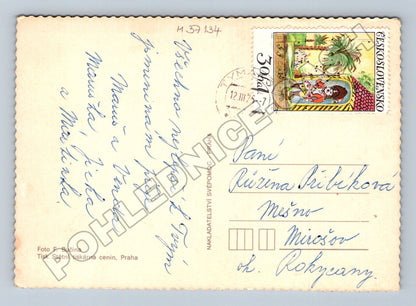 M 37134
Všechno nejlepší k Tvým
jmeninám přejí
Manuša Jirka
a Martinka
Foto F. Bučina
Tisk Státní tiskárna cenin, Praha
NAKLADATELSTVÍ SVĚPOMOC
ČESKOSLOVENSKO
30h
12.III.7
Paní
Růžena Přibíková
Mešno
Mirošov
ok. Rokycany.
POHLEDNICE